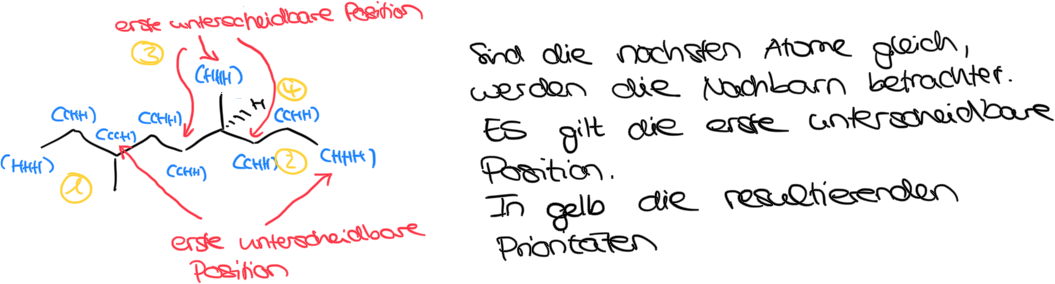 erste unterscheidbare Position
3
(HHH)
4
H
(CHH)
(CHH)
(CHH)
(CCH)
(HHH)
1
(CHH)
(CHH)
2
(HHH)
erste unterscheidbare
Position
Sind die nächsten Atome gleich,
werden die Nachbarn betrachtet.
ES gilt die erste unterscheidbare
Position.
In gelb die resultierenden
Prioritäten